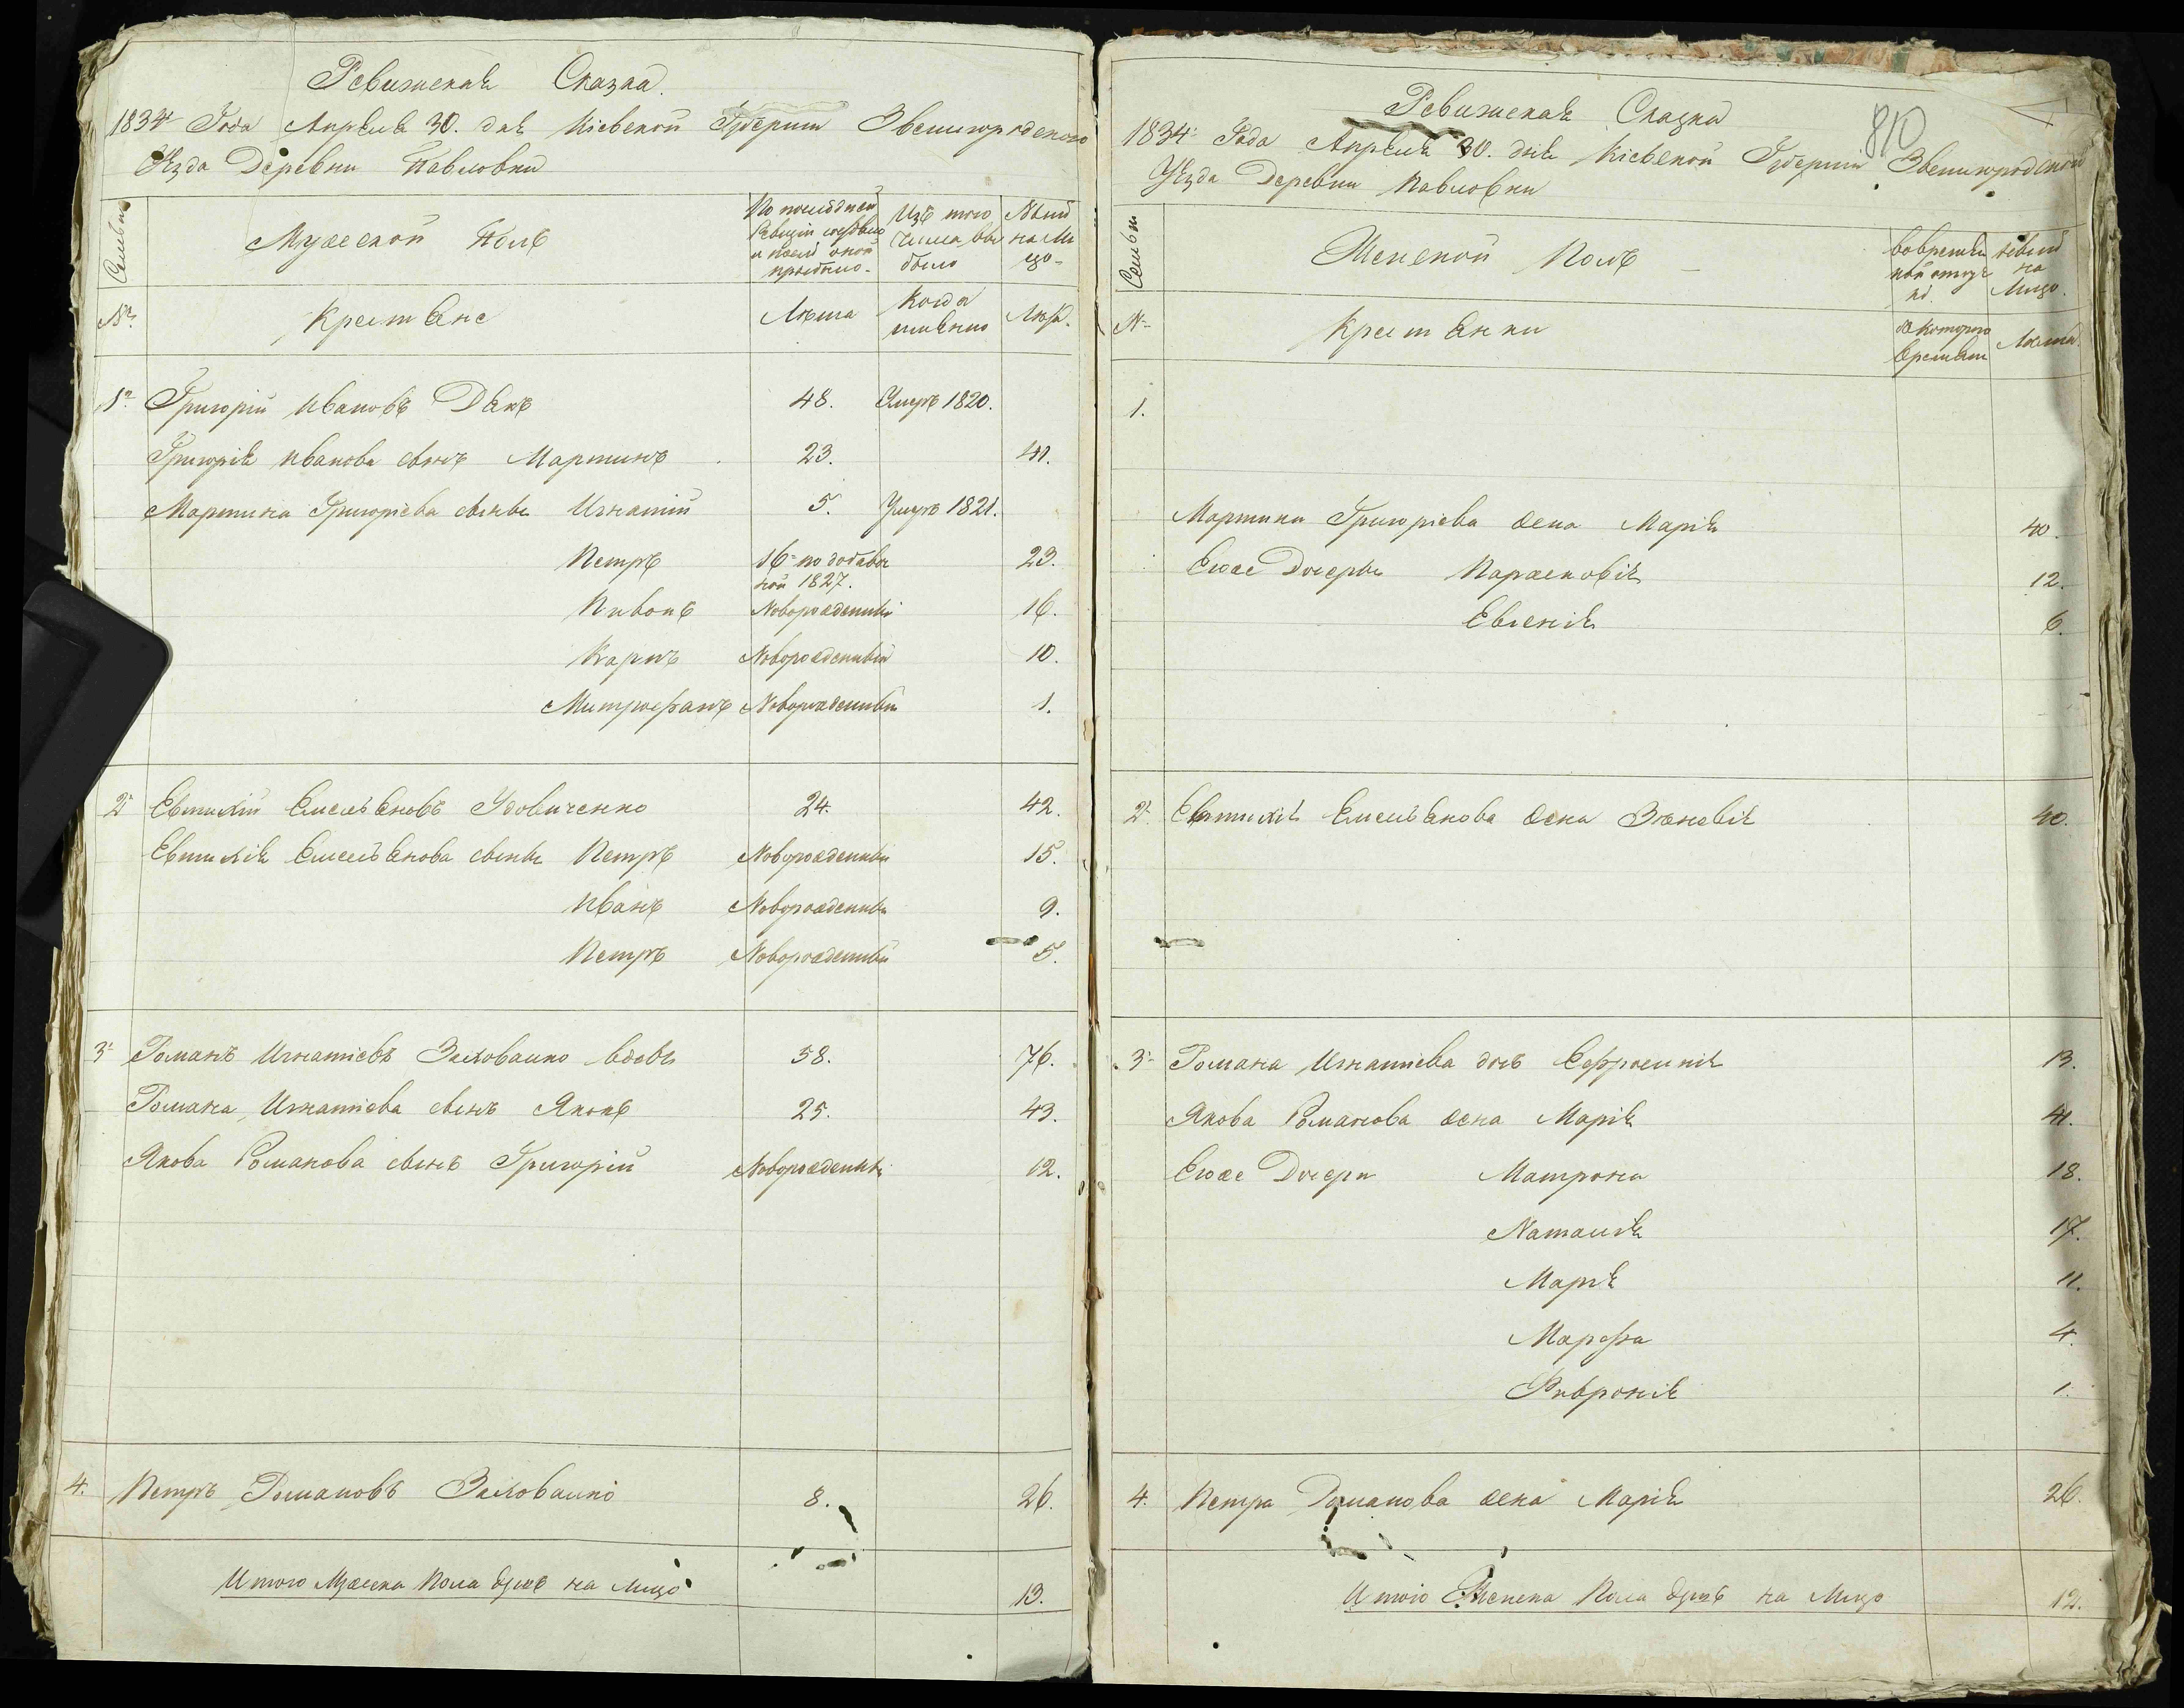 Ревижская Сказка.
1834 Года Апреля 30. дня Кіевской Губерніи Звенигородскаго
Уезда Деревни Павловки
Семьи
Мужеской Полъ
По последней
Ревизіи состояло
и после оной
прибыло.
Изъ того
числа вы
было
Ныне
на Ли
цо.
№
Крестяне
Лета
Когда
именно
Лета.
1. Григорій Ивановъ 48. Умръ 1820.
Григорія Иванова сынъ Мартинъ 23. 41.
Мартина Григоріева сыны Игнатій 5. Умръ 1821.
Петръ 16 по добавоч 23.
ной 1827.
Пивонъ Новорожденный 16.
Карпъ Новорожденный 10.
Митрофанъ Новорожденный 1.
2 Евтихій Емельяновъ Удовиченко 24. 42.
Евтихія Емельянова сыны Петръ Новорожденный 15.
Иванъ Новорожденный 9.
Петръ Новорожденный 5.
3 Романъ Игнатіевъ вдовъ 58. 76.
Романа Игнатіева сынъ Яковъ 25. 43.
Якова Романова сынъ Григорій Новорожденный 12.
4. Петръ Романовъ 8. 26.
Итого Мужеска Пола душъ на Лицо 13.
810
Ревижская Сказка
1834 Года Апреля 30. дня Кіевской Губерніи Звенигородскаго
Уезда Деревни Павловки
Семьи
Женской Полъ
Во времен
ной отлуч
ке.
Ныне
на
Лицо.
№
Крестянки
Съ которого
времени
Лета.
1.
Мартина Григоріева жена Марія 40.
Егоже Дочеры Парасковія 12.
Евгенія 6.
2. Евтихія Емельянова жена Зѣновія 40.
3. Романа Игнатіева дочь Ефросинія 13.
Якова Романова жена Марія 41.
Егоже Дочери Матрона 18.
Наталія 17.
Марія 11.
Марфа 4.
1.
4. Петра Романова жена Марія 26.
Итого Женска Пола душъ на Лицо 12.